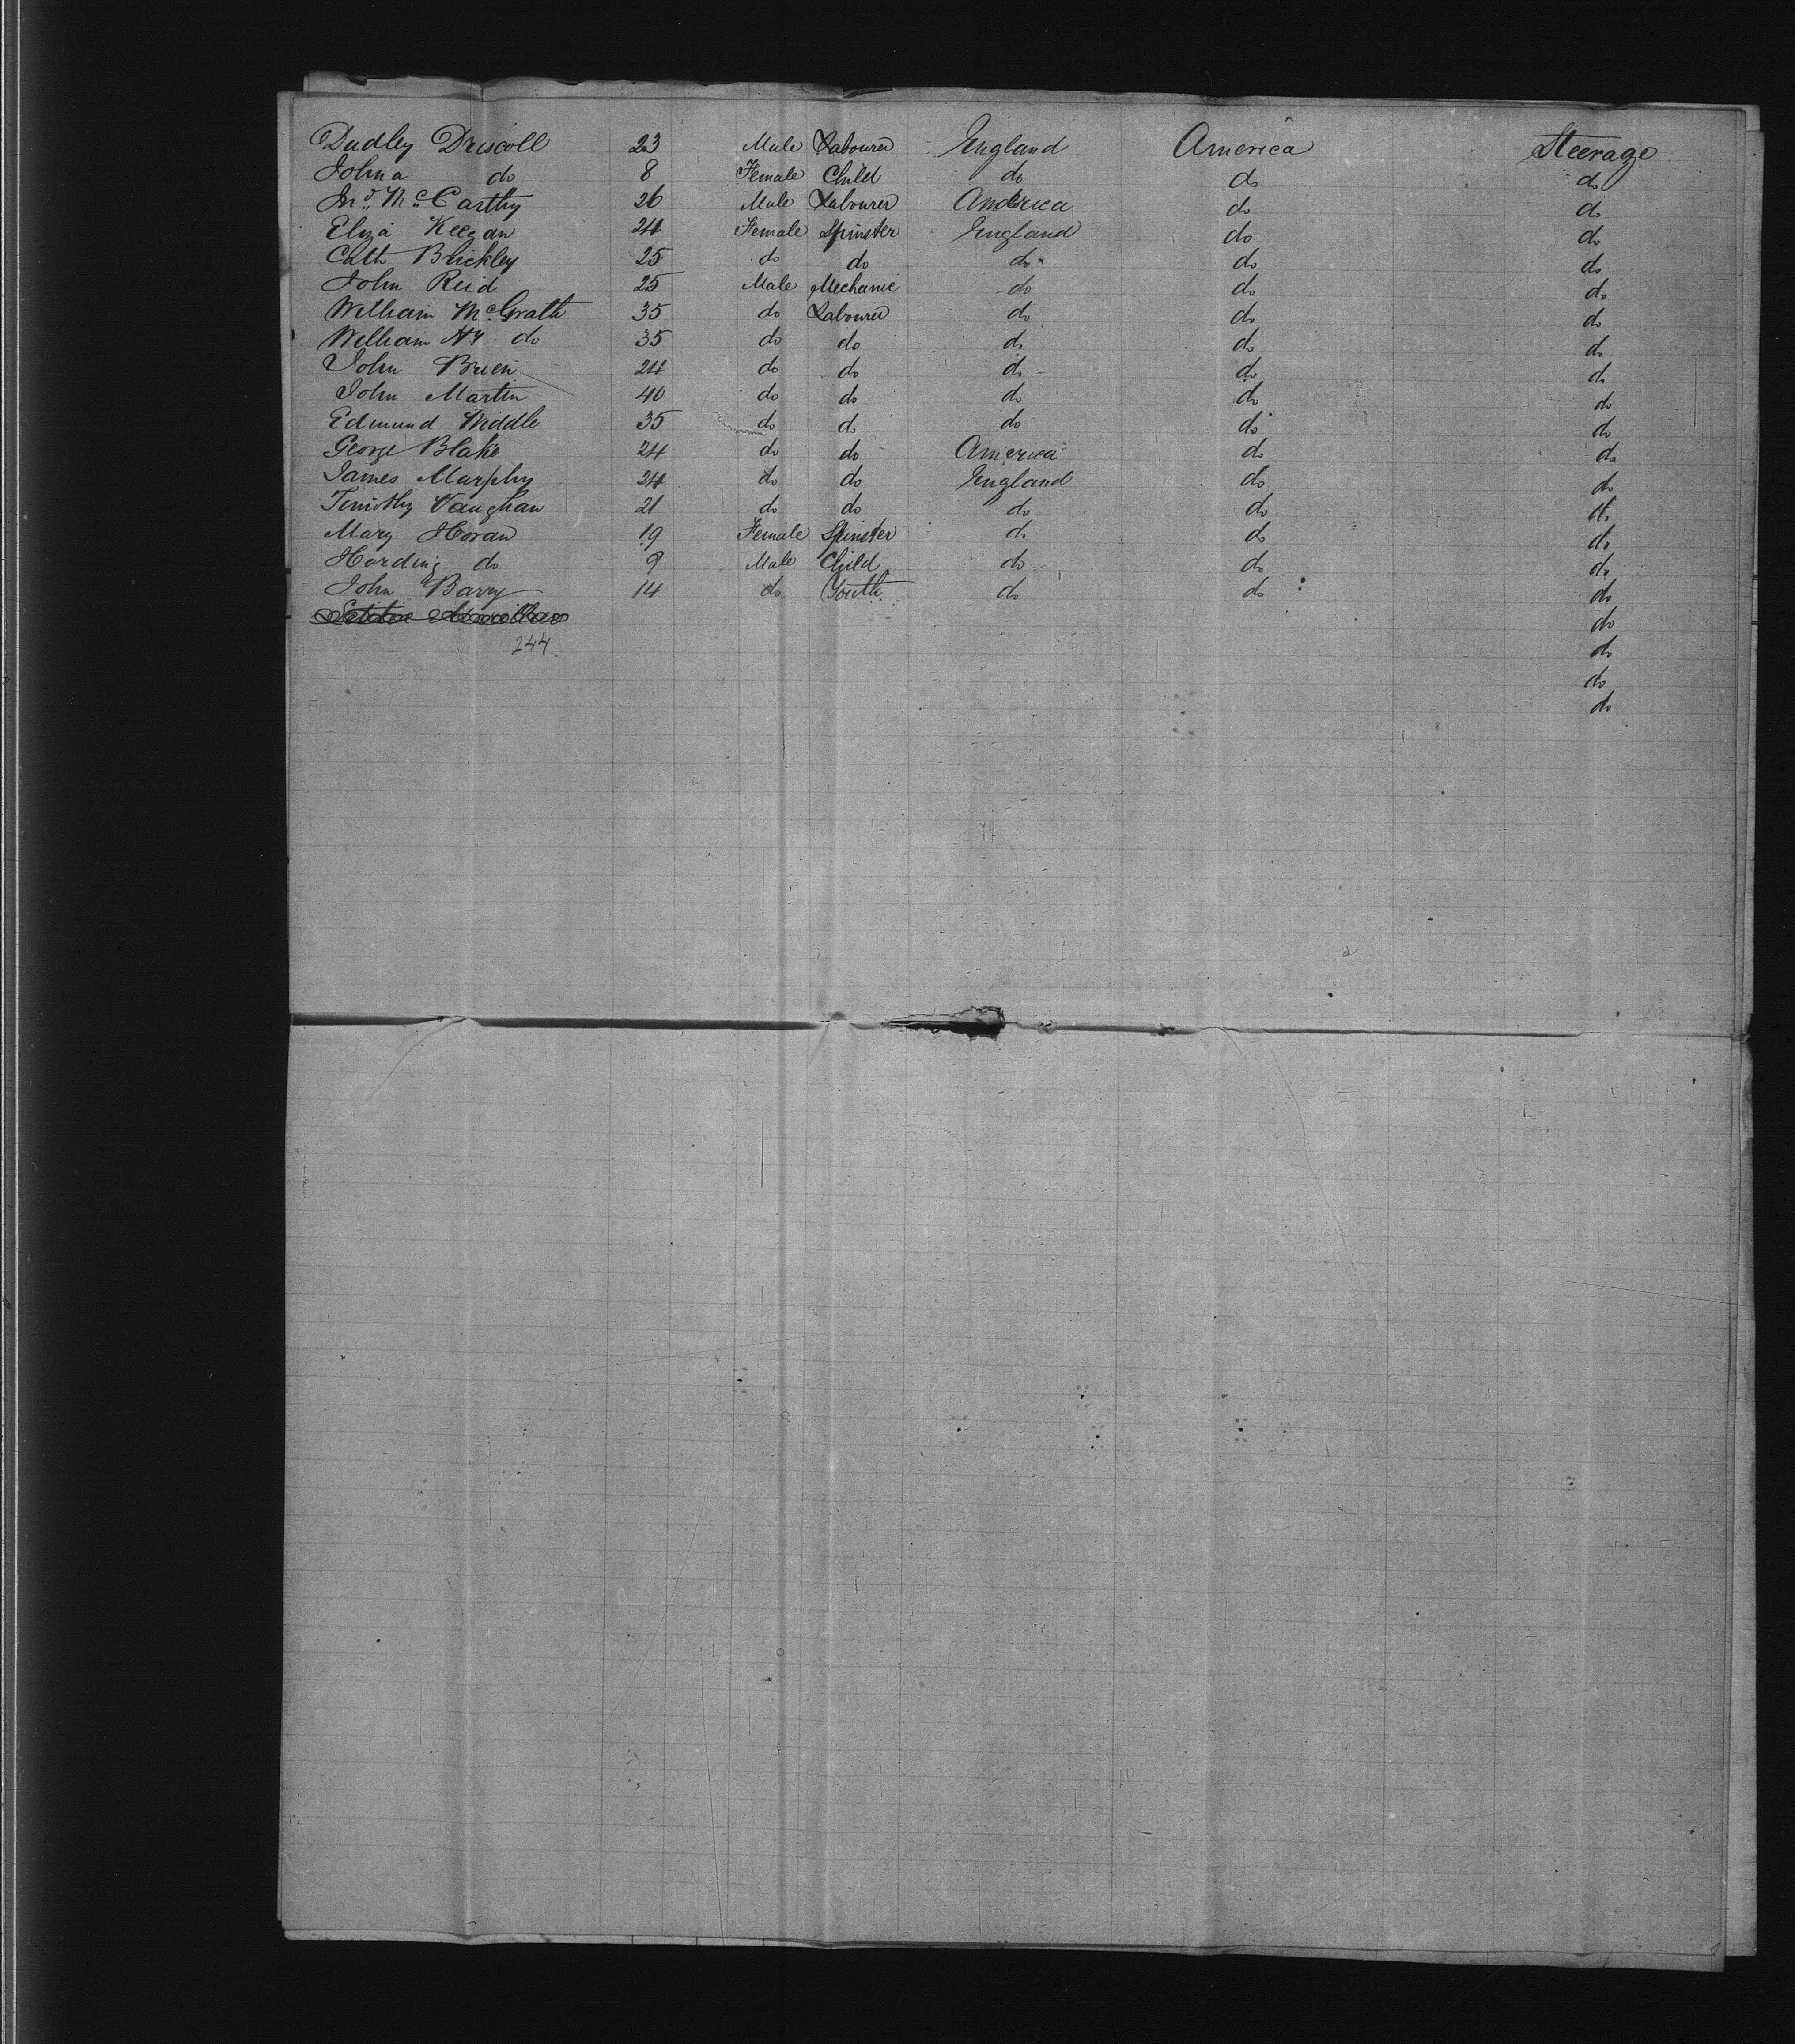 Dudley Driscoll 23 Male Labourer England America Steerage
Johna do 8 Female Child do do do
Jno. McCarthy 26 Male Labourer America do do
Eliza Keegan 24 Female Spinster England do do
Cath Brickley 25 do do do do do
John Reid 25 Male Mechanic do do do
William McGrath 35 do Labourer do do do
William Hy do 35 do do do do do
John Brien 24 do do do do do
John Martin 40 do do do do do
Edmund Widdle 35 do do do do do
George Blake 24 do do America do do
James Murphy 24 do do England do do
Timothy Vaughan 21 do do do do do
Mary Horan 19 Female Spinster do do do
Harding do 9 Male Child do do do
John Barry 14 do Youth do do do
do
244. do
do
do